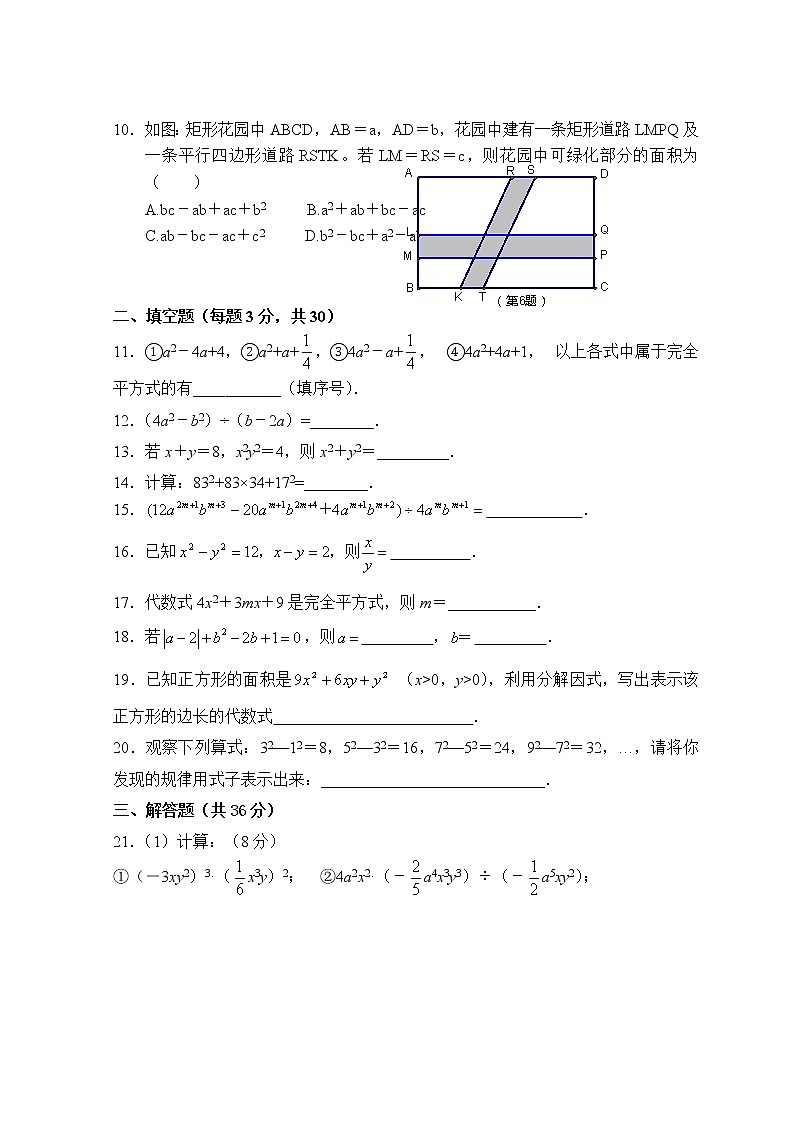 10．如图：矩形花园中 ABCD，AB＝a，AD＝b，花园中建有一条矩形道路 LMPQ 及
一条平行四边形道路 RSTK。若 LM＝RS＝c，则花园中可绿化部分的面积为
（　　）
A.bc－ab＋ac＋b²　　B.a²＋ab＋bc－ac
C.ab－bc－ac＋c²　　D.b²－bc＋a²－a
A R S D
L Q
M P
B K T C
（第6题）
二、填空题（每题 3 分，共 30）
11．①a²－4a+4，②a²+a+1/4，③4a²－a+1/4，　④4a²+4a+1，　以上各式中属于完全
平方式的有___________（填序号）．
12．（4a²－b²）÷（b－2a）=________．
13．若 x＋y＝8，x²y²＝4，则 x²＋y²＝_________．
14．计算：83²+83×34+17²=________．
15．(12a^{2m+1}b^{m+3}－20a^{m+1}b^{2m+4}+4a^{m+1}b^{m+2})÷4a^{m}b^{m+1}=____________．
16．已知 x²－y²＝12，x－y＝2，则 x/y＝__________．
17．代数式 4x²＋3mx＋9 是完全平方式，则 m＝___________．
18．若|a－2|+b²－2b+1=0，则 a＝_________，b＝_________．
19．已知正方形的面积是 9x²+6xy+y² （x>0，y>0），利用分解因式，写出表示该
正方形的边长的代数式_________________________．
20．观察下列算式：3²—1²＝8，5²—3²＝16，7²—5²＝24，9²—7²＝32，…，请将你
发现的规律用式子表示出来：____________________________．
三、解答题（共 36 分）
21．（1）计算：（8 分）
①（－3xy²）³·（1/6 x³y）²；　②4a²x²·（－2/5 a⁴x³y³）÷（－1/2 a⁵xy²）；